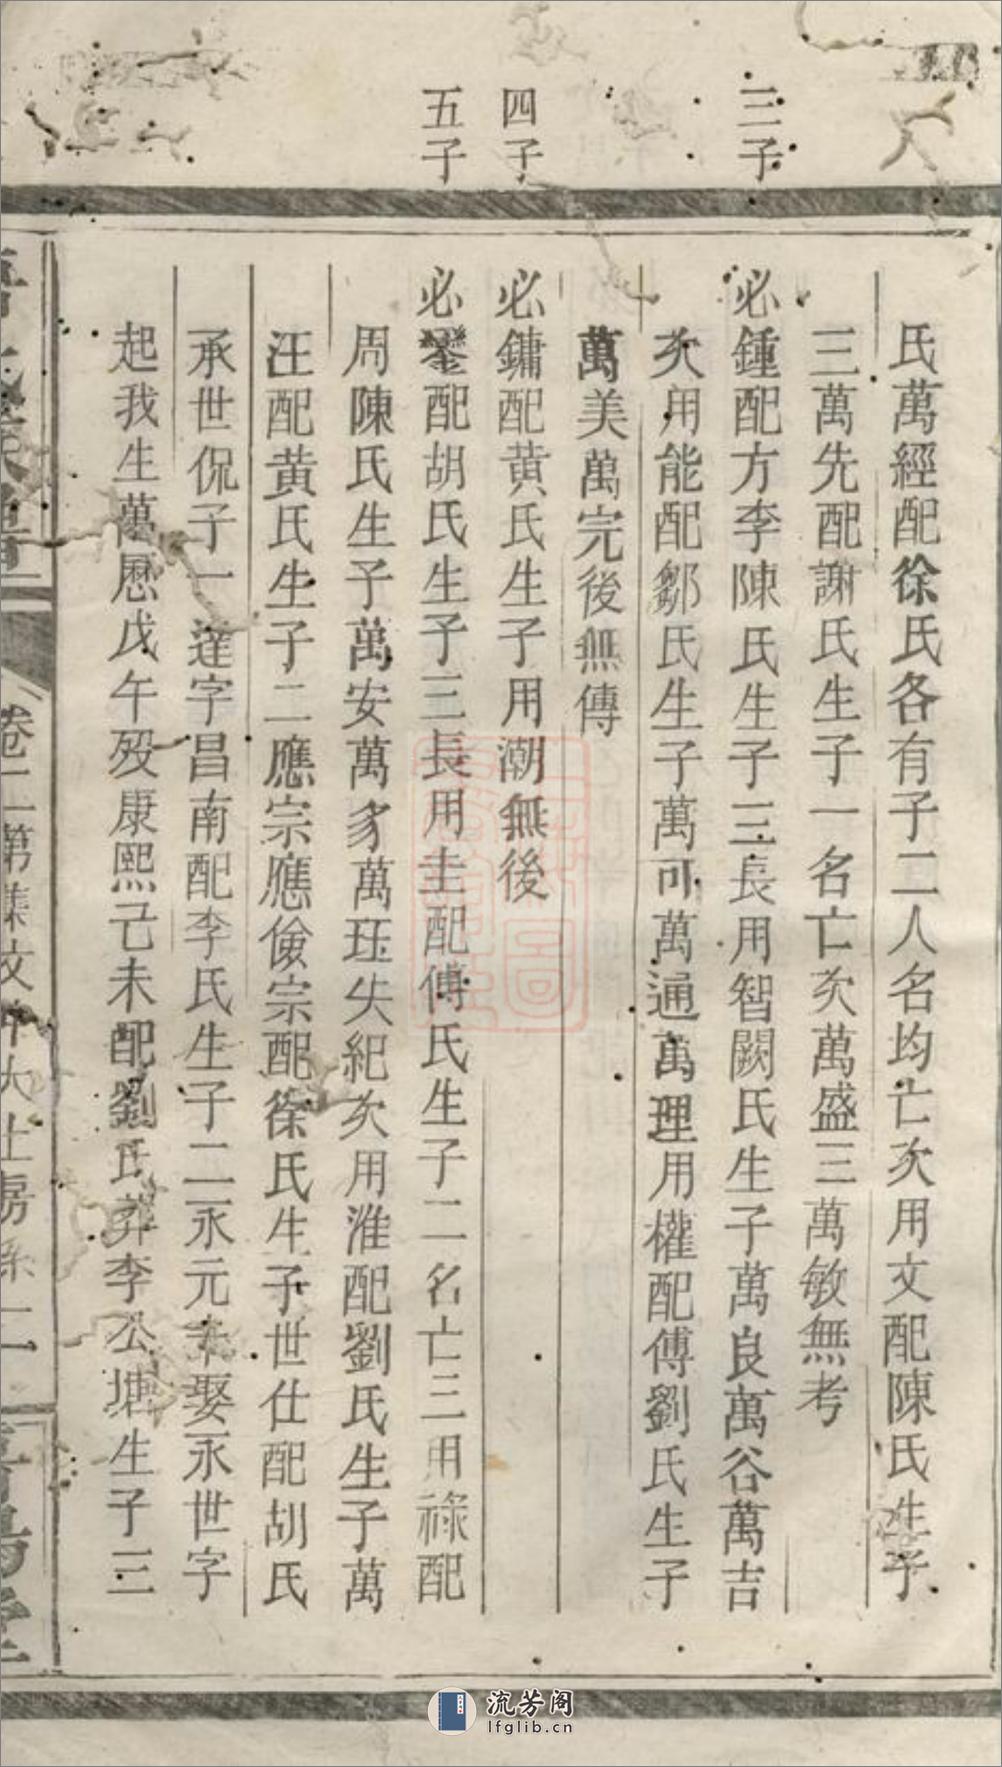 三子
四子
五子
氏萬經配徐氏各有子二人名均亡次用文配陳氏生子
三萬先配謝氏生子一名亡次萬盛三萬敏無考
必鍾配方李陳氏生子三長用智闕氏生子萬良萬谷萬吉
次用能配鄒氏生子萬可萬通萬理用權配傅劉氏生子
萬美萬完後無傳
必鏞配黄氏生子用潮無後
必配胡氏生子三長用圭配傅氏生子二名亡三用祿配
周陳氏生子萬安萬萬珏失紀次用淮配劉氏生子萬
汪配黄氏生子二應宗應儉宗配徐氏生子世仕配胡氏
承世侃子一達字昌南配李氏生子二永元未娶永世字
起我生萬曆戊午歿康熙己未配劉氏葬李公塘生子三
卷二第集文
流芳阁
lfglib.cn